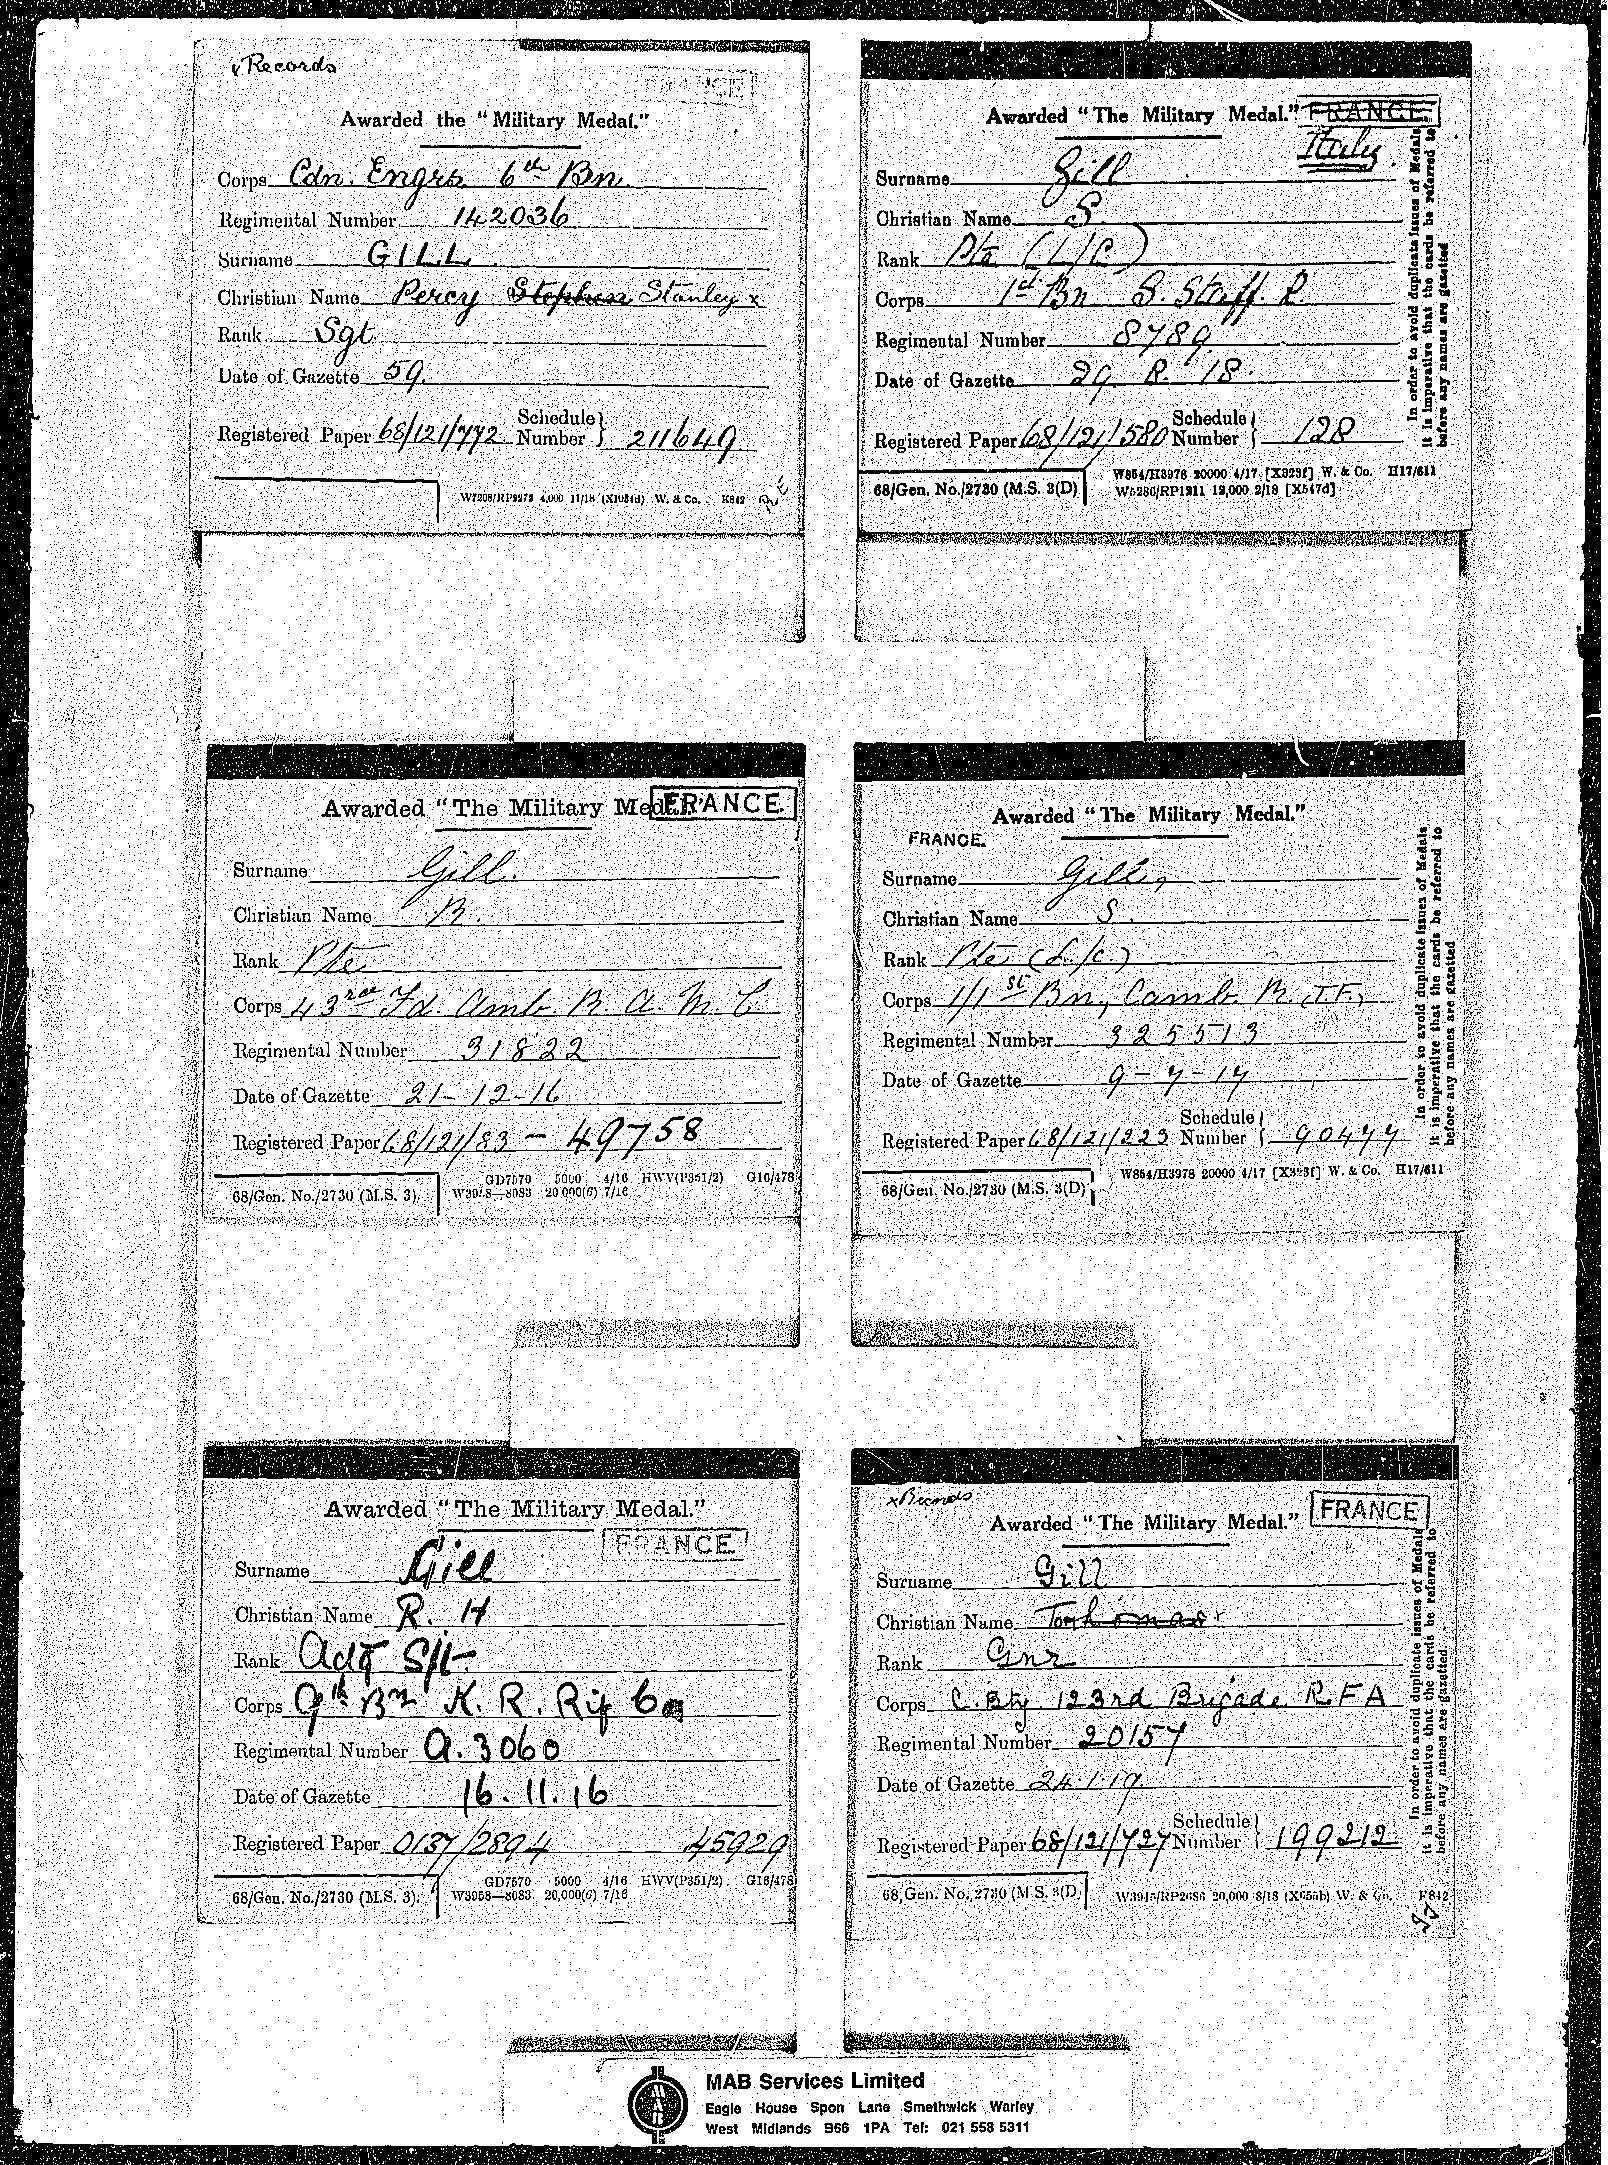 x Records
Awarded the "Military Medal."
Corps Cdn. Engrs. 6th Bn.
Regimental Number 142036
Surname GILL
Christian Name Percy Stephen Stanley x
Rank Sgt
Date of Gazette 59.
Registered Paper 68/121/772 Schedule Number } 211649.
W7208/RP9273 4,000 11/18 (X1084d) W. & Co. K842
Awarded "The Military Medal." FRANCE.
Italy
Surname Gill
Christian Name S.
Rank Pte (L/C)
Corps 1st Bn S. Staff. R.
Regimental Number 8789
Date of Gazette 29. 8. 18.
Registered Paper 68/121/580 Schedule Number } 128
68/Gen. No./2730 (M.S. 3(D)
W854/H3978 20000 4/17 [X323f] W. & Co. H17/611
W5280/RP1211 12,000 2/18 [X547d]
In order to avoid duplicate issues of Medals
it is imperative that the cards be referred to
before any names are gazetted
Awarded "The Military Medal." FRANCE.
Surname Gill.
Christian Name R.
Rank Pte
Corps 43rd Fd. Amb. R. A. M. C.
Regimental Number 31822
Date of Gazette 21-12-16
Registered Paper 68/121/83 - 49758
68/Gen. No./2730 (M.S. 3).
GD7570 5000 4/16 HWV(P351/2) G16/478
W3058—8083 20,000(6) 7/16
Awarded "The Military Medal."
FRANCE.
Surname Gill,
Christian Name S.
Rank Pte (L/C.)
Corps 1/1st Bn, Camb. R. (T.F.)
Regimental Number 325513
Date of Gazette 9-7-17
Registered Paper 68/121/223 Schedule Number } 90477
68/Gen. No./2730 (M.S. 3(D)
W854/H3978 20000 4/17 [X323f] W. & Co. H17/611
In order to avoid duplicate issues of Medals
it is imperative that the cards be referred to
before any names are gazetted
Awarded "The Military Medal."
FRANCE.
Surname Gill
Christian Name R. H
Rank
Corps 9th Bn K. R. Rif
Regimental Number A. 3060
Date of Gazette 16. 11. 16
Registered Paper 0137/2894 45929
68/Gen. No./2730 (M.S. 3).
GD7570 5000 4/16 HWV(P351/2) G16/478
W3058—8083 20,000(6) 7/16
x Records
Awarded "The Military Medal." FRANCE
Surname Gill
Christian Name
Rank Gnr
Corps C. Bty. 123rd Brigade R.F.A
Regimental Number 20157
Date of Gazette 24.1.19.
Registered Paper 68/121/727 Schedule Number } 199212
68/Gen. No./2730 (M.S. 3(D)
20,000 8/18 W. & Co. F842
In order to avoid duplicate issues of Medals
it is imperative that the cards be referred to
before any names are gazetted.
MAB Services Limited
Eagle House Spon Lane Smethwick Warley
West Midlands B66 1PA Tel: 021 558 5311